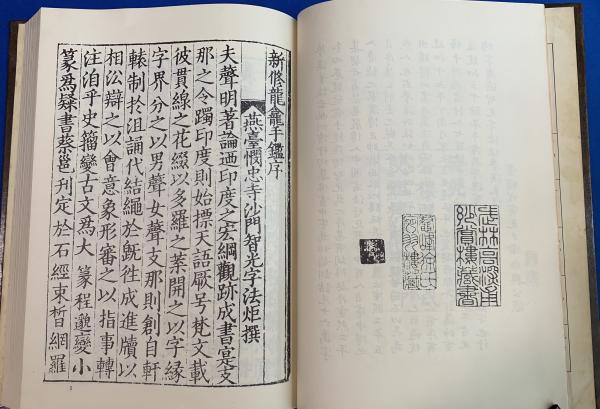 新修龍龕手鑑序
燕臺憫忠寺沙門智光字法炬撰
夫聲明著論迺印度之宏綱觀跡成書寔支
那之令躅印度則始標天語厥号梵文載
彼貫線之花綴以多羅之葉開之以字緣
字界分之以男聲女聲支那則創自軒
轅制於沮誦代結繩於旣往成進牘以
相㳂辯之以會意象形審之以指事轉
注洎乎史籀變古文爲大篆程邈變小
篆爲隸書蔡邕刋定於石經束晳網羅